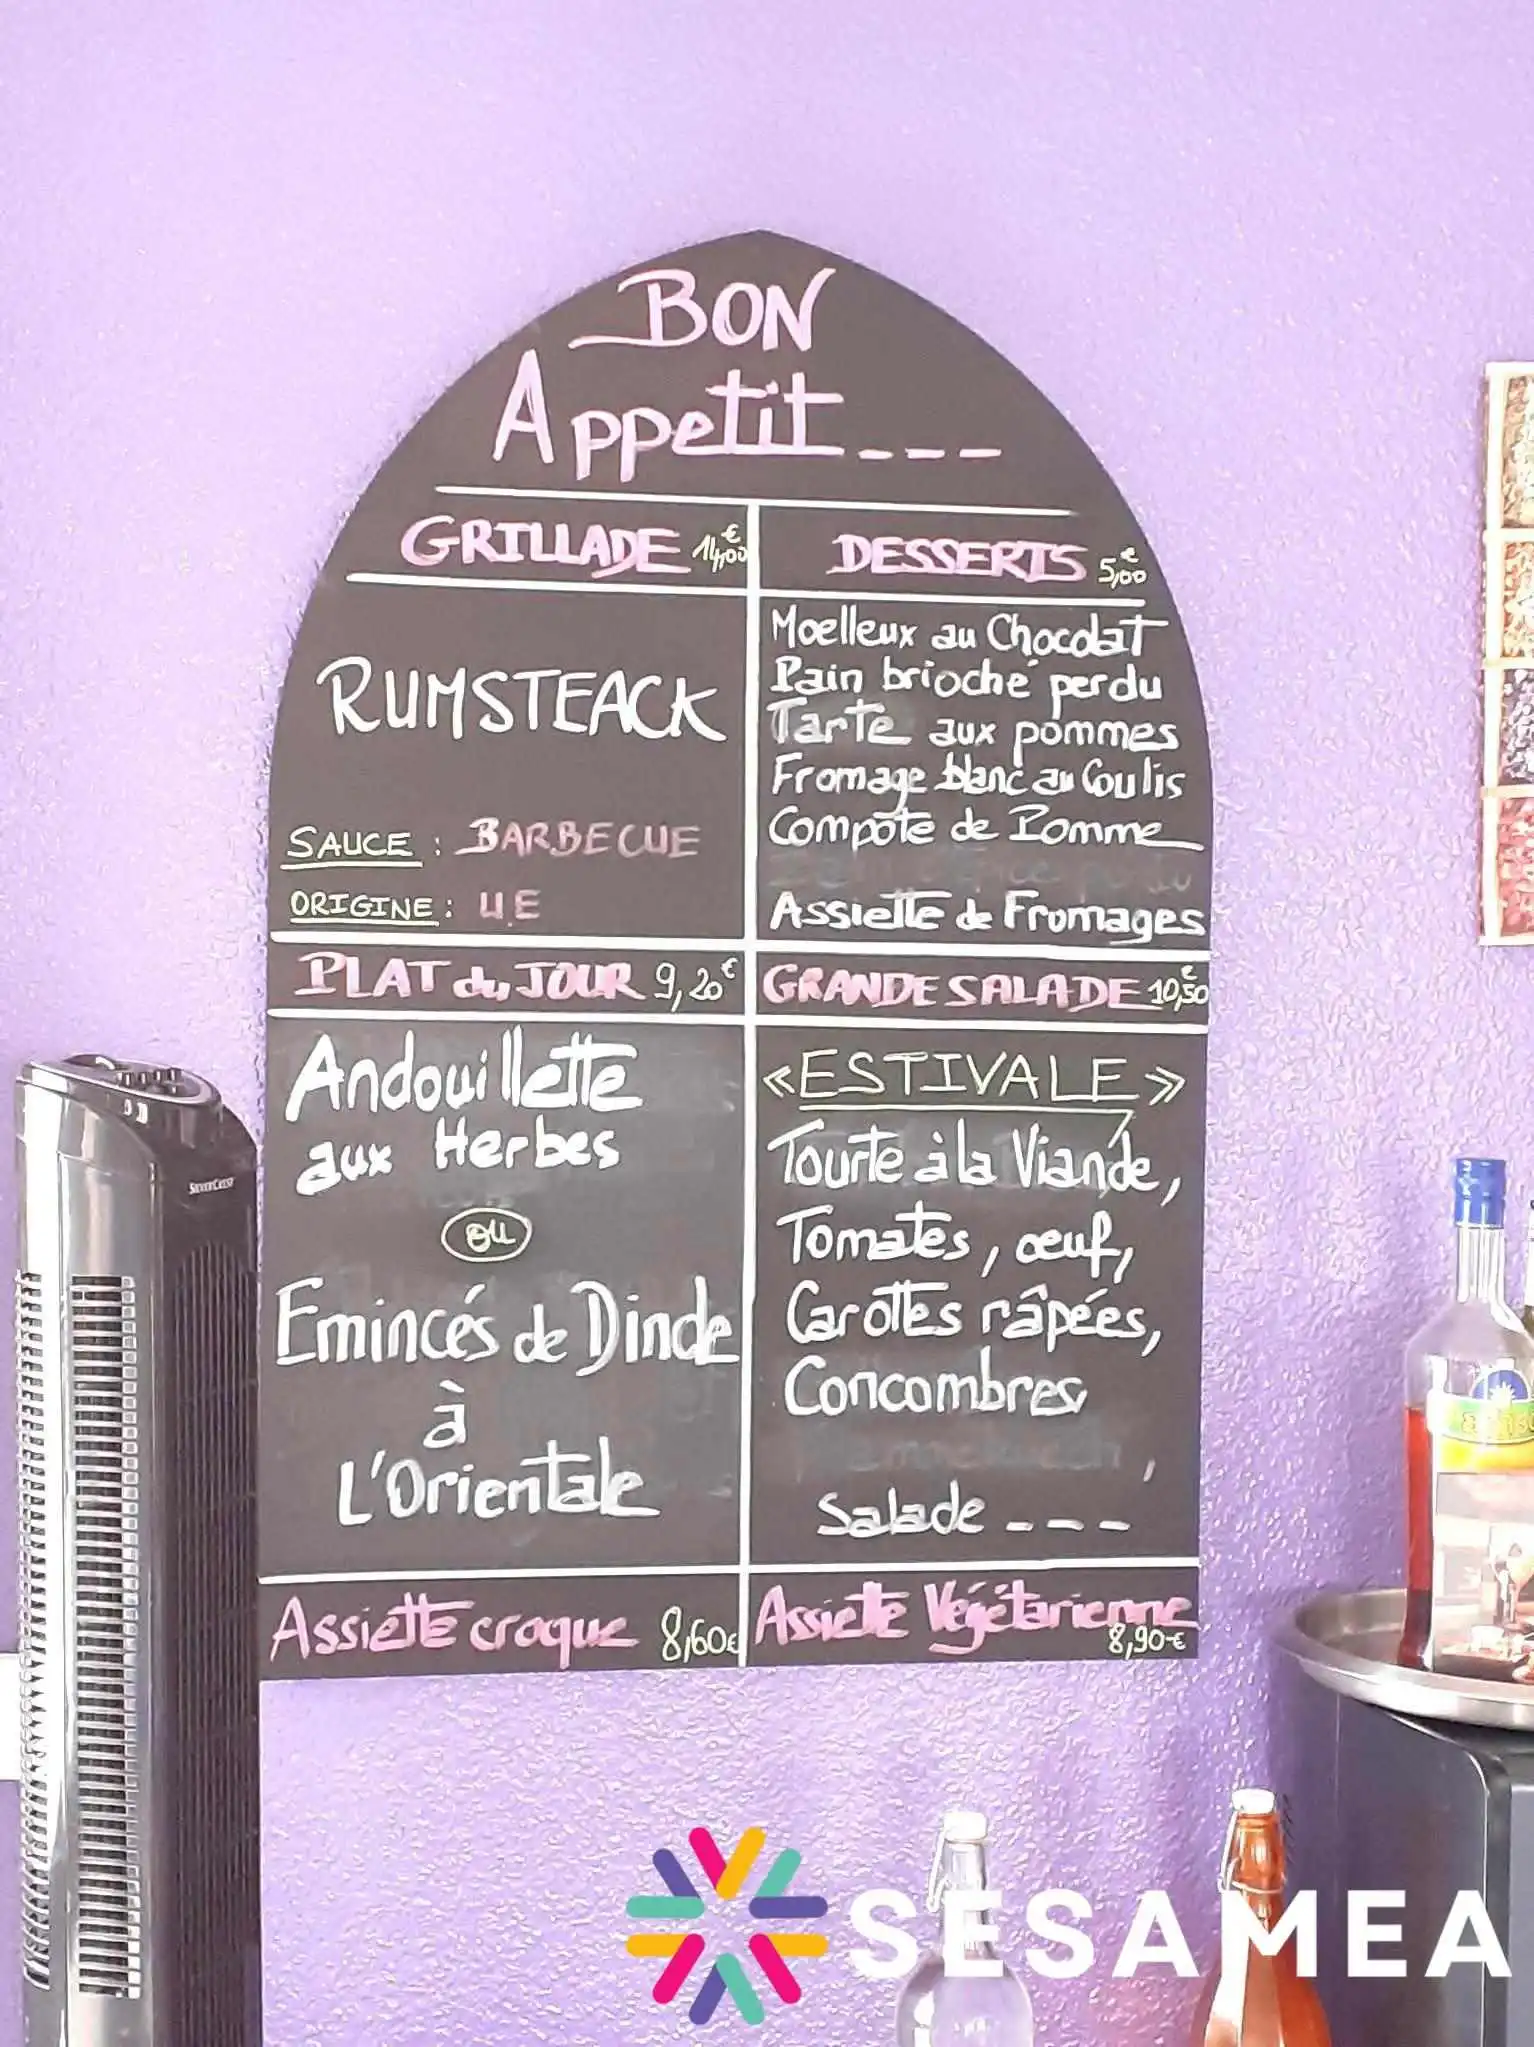 BON
Appetit ---
GRILLADE 14,00€
RUMSTEACK
SAUCE : BARBECUE
ORIGINE : U.E
DESSERTS 5,00€
Moelleux au Chocolat
Pain brioché perdu
Tarte aux pommes
Fromage blanc au Coulis
Compôte de Pomme
Assiette de Fromages
PLAT du JOUR 9,20€
Andouillette
aux Herbes
ou
Emincés de Dinde
à
L'Orientale
GRANDE SALADE 10,50€
«ESTIVALE»
Tourte à la Viande,
Tomates, œuf,
Carottes râpées,
Concombres
,
Salade ---
Assiette croque 8,60€
Assiette Végétarienne
8,90€
SILVERCREST
SESAMEA